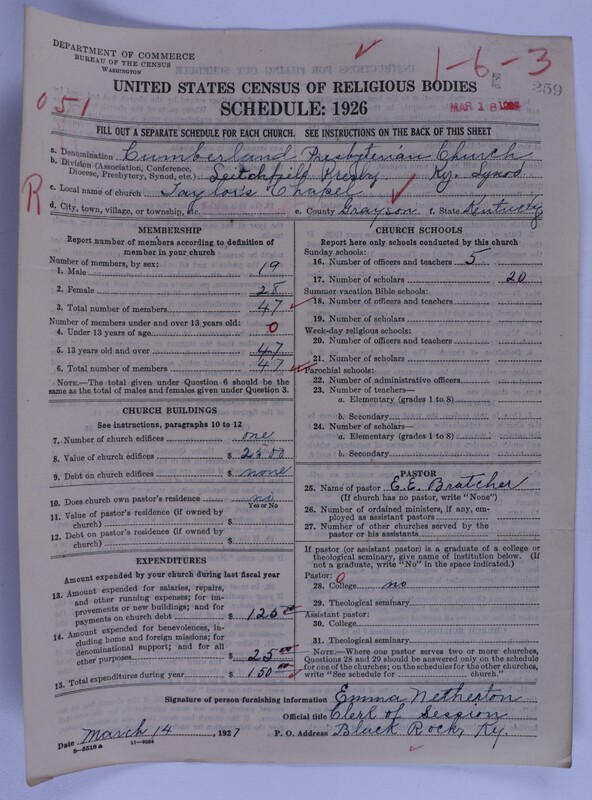 DEPARTMENT OF COMMERCE
BUREAU OF THE CENSUS
WASHINGTON
1-6-3
051
MAR 18
259
UNITED STATES CENSUS OF RELIGIOUS BODIES
SCHEDULE: 1926
FILL OUT A SEPARATE SCHEDULE FOR EACH CHURCH. SEE INSTRUCTIONS ON THE BACK OF THIS SHEET
R
a. Denomination Cumberland Presbyterian Church
b. Division (Association, Conference, Diocese, Presbytery, Synod, etc.) Leitchfield Presby Ky. Synod
c. Local name of church Taylors Chapel
d. City, town, village, or township, etc. e. County Grayson f. State Kentucky
MEMBERSHIP
Report number of members according to definition of
member in your church
Number of members, by sex:
1. Male 19
2. Female 28
3. Total number of members 47
Number of members under and over 13 years old:
4. Under 13 years of age 0
5. 13 years old and over 47
6. Total number of members 47
NOTE.—The total given under Question 6 should be
same as the total of males and females given under Question 3.
CHURCH BUILDINGS
See instructions, paragraphs 10 to 12
7. Number of church edifices one
8. Value of church edifices $
9. Debt on church edifices $ none
10. Does church own pastor's residence no
Yes or No
11. Value of pastor's residence (if owned by
church) $
12. Debt on pastor's residence (if owned by
church) $
EXPENDITURES
Amount expended by your church during last fiscal year
13. Amount expended for salaries, repairs,
and other running expenses; for im-
provements or new buildings; and for
payments on church debt $ 125 00
14. Amount expended for benevolences, in-
cluding home and foreign missions; for
denominational support; and for all
other purposes $ 25 00
15. Total expenditures during year $ 150 00
CHURCH SCHOOLS
Report here only schools conducted by this church
Sunday schools:
16. Number of officers and teachers 5
17. Number of scholars 20
Summer vacation Bible schools:
18. Number of officers and teachers
19. Number of scholars
Week-day religious schools:
20. Number of officers and teachers
21. Number of scholars
Parochial schools:
22. Number of administrative officers
23. Number of teachers—
a. Elementary (grades 1 to 8)
b. Secondary
24. Number of scholars—
a. Elementary (grades 1 to 8)
b. Secondary
PASTOR
25. Name of pastor E.E. Bratcher
(If church has no pastor, write "None")
26. Number of ordained ministers, if any, em-
ployed as assistant pastors
27. Number of other churches served by the
pastor or his assistants
If pastor (or assistant pastor) is a graduate of a college or
theological seminary, give name of institution below. (If
not a graduate, write "No" in the space indicated.)
Pastor: 0
28. College no
29. Theological seminary
Assistant pastor:
30. College
31. Theological seminary
NOTE.—Where one pastor serves two or more churches,
Questions 28 and 29 should be answered only on the schedule
for one of the churches; on the schedules for the other churches,
write "See schedule for church."
Signature of person furnishing information Emma Netherton
Official title Clerk of Session
Date March 14, 1927 P. O. Address Black Rock, Ky.
8-5518 a 11-9084